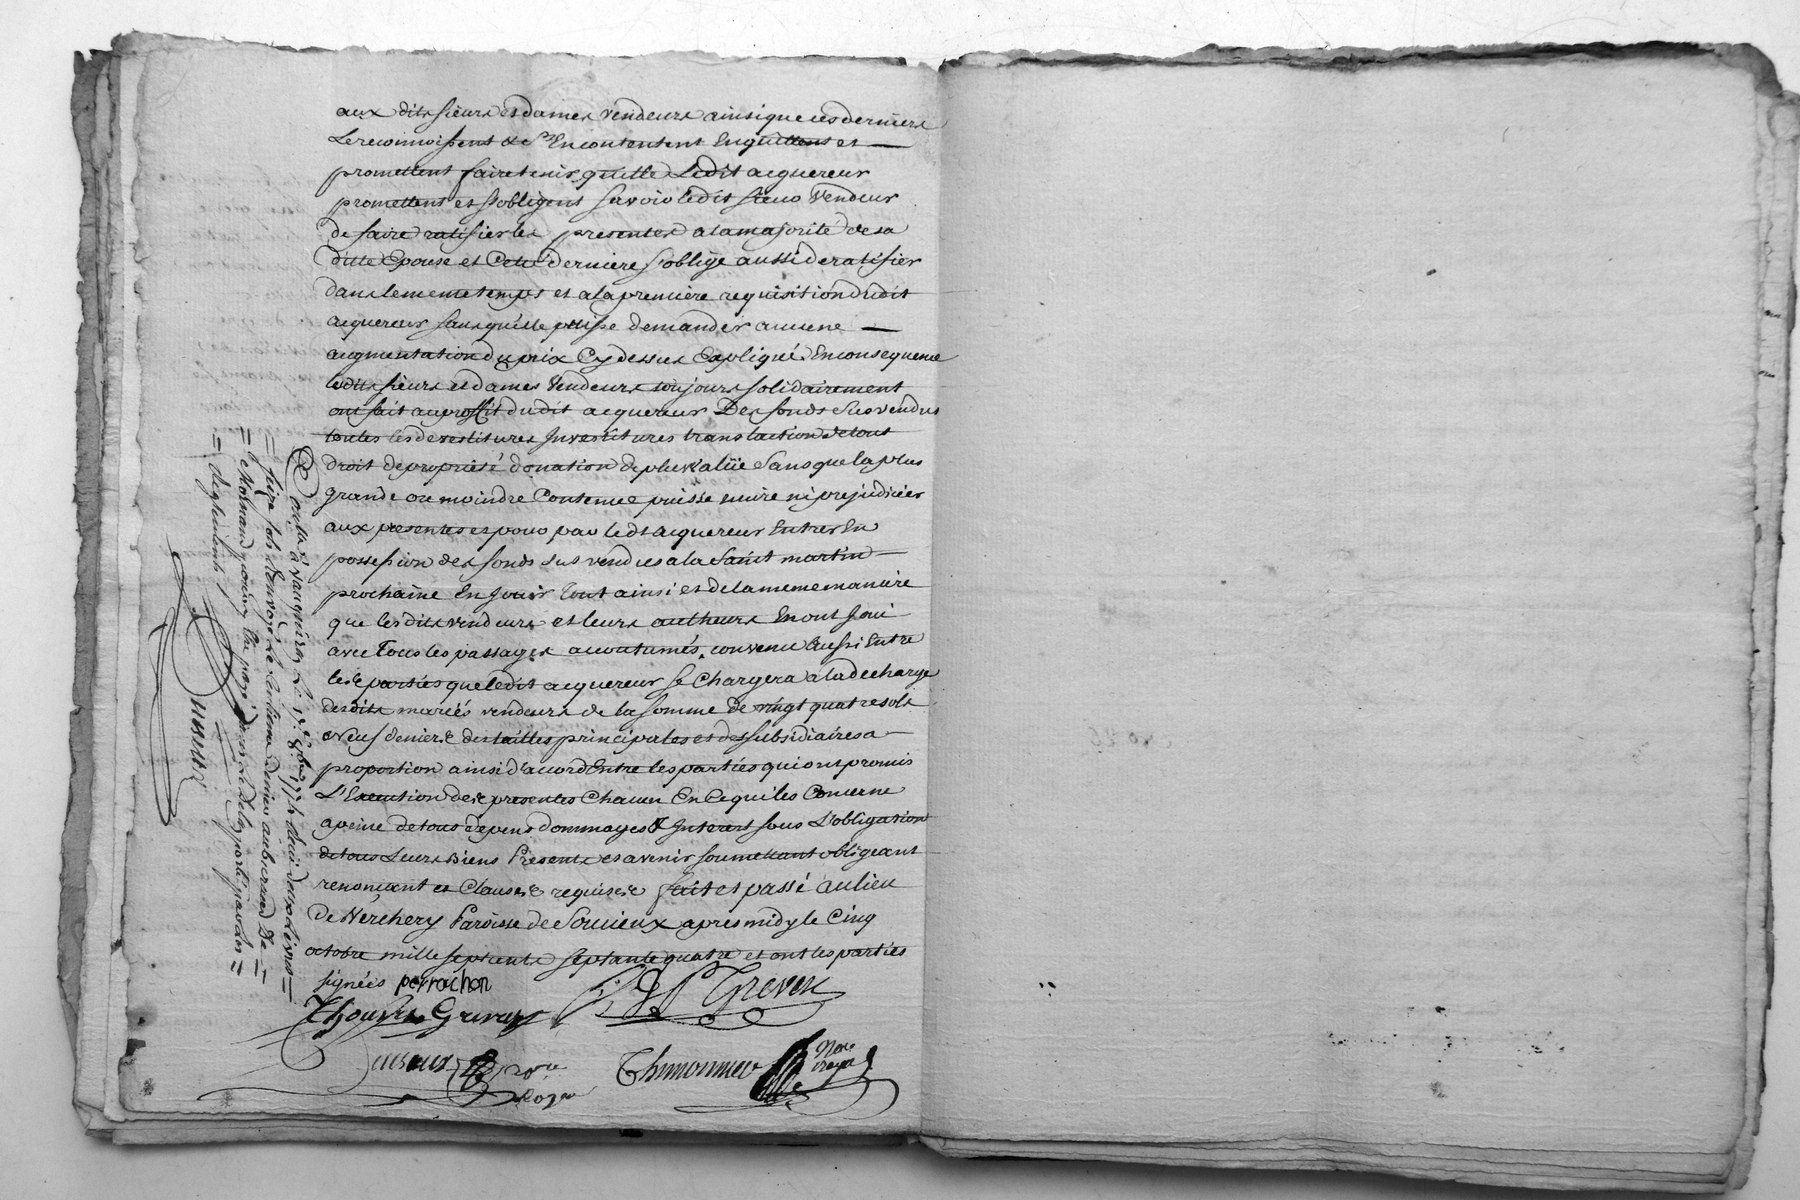 aux dits sieurs et dames vendeurs ainsi que ces derniers
Le reconnoissent & s'En contentent En quittent et —
promettent faire tenir quitte Ledit acquereur
promettent et s'obligent savoir ledit sieur Vendeur
de faire ratifier les presentes a la majorité de sa
ditte Epouse et Cette derniere s'oblige aussi de ratifier
dans le meme temps et a la premiere requisition dudit
acquereur sans qu'elle puisse demander aucune —
augmentation du prix Cy dessus Expliqué En consequence
lesdits sieurs et dames Vendeurs toujours solidairement
ont fait au proffit dudit acquereur Des fonds sus vendus
toutes les devestitures Investitures translation de tout
droit de proprieté donation de plus value sans que la plus
grande ou moindre Contenue puisse nuire ni prejudicier
aux presentes et pour par led acquereur Entrer En
possession des fonds sus vendus a la saint martin —
prochaine En Jouir tout ainsi et de la meme maniere
que lesdits vendeurs et leurs autheurs En ont Joui
avec Tous les passages acoutumés, convenu Aussi Entre
les parties que ledit acquereur se Chargera a la decharge
desdits mariés vendeurs de la somme de vingt quatre sols
Neuf deniers des tailles principales et des subsidiaires a —
proportion ainsi d'accord Entre les parties qui ont promis
L'Execution des presentes Chacun En Ce qui les Concerne
a peine de tous depens dommages & Interest sous L'obligation
de tous Leurs Biens Presents et avenir soumettant obligeant
renonçant et Clauses requises fait et passé au lieu
de Nerchery Paroisse de Soucieux apres midy le Cinq
octobre mille sept cents septante quatre et ont les parties
signées perrachon
Greven
Thimonnier
Con.lé à vaugneray Le 17e 8bre 1774